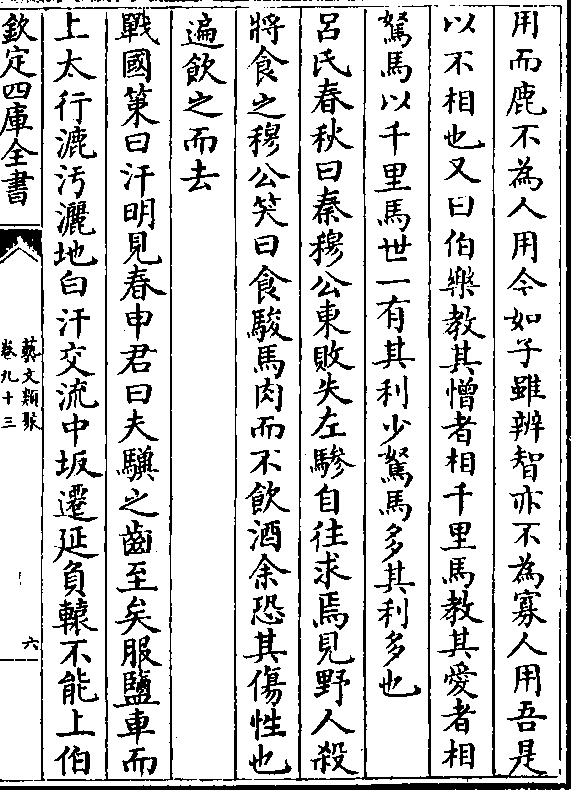 用而鹿不為人用今如子雖辨智亦不為寡人用吾是
以不相也又曰伯樂教其憎者相千里馬教其愛者相
駑馬以千里馬世一有其利少駑馬多其利多也
呂氏春秋曰秦穆公東敗失左驂自往求焉見野人殺
將食之穆公笑曰食駿馬肉而不飲酒余恐其傷性也
遍飲之而去
戰國策曰汗明見春申君曰夫驥之齒至矣服鹽車而
上太行漉汚灑地白汗交流中坂遷延負轅不能上伯
欽定四庫全書
藝文類聚
卷九十三
六